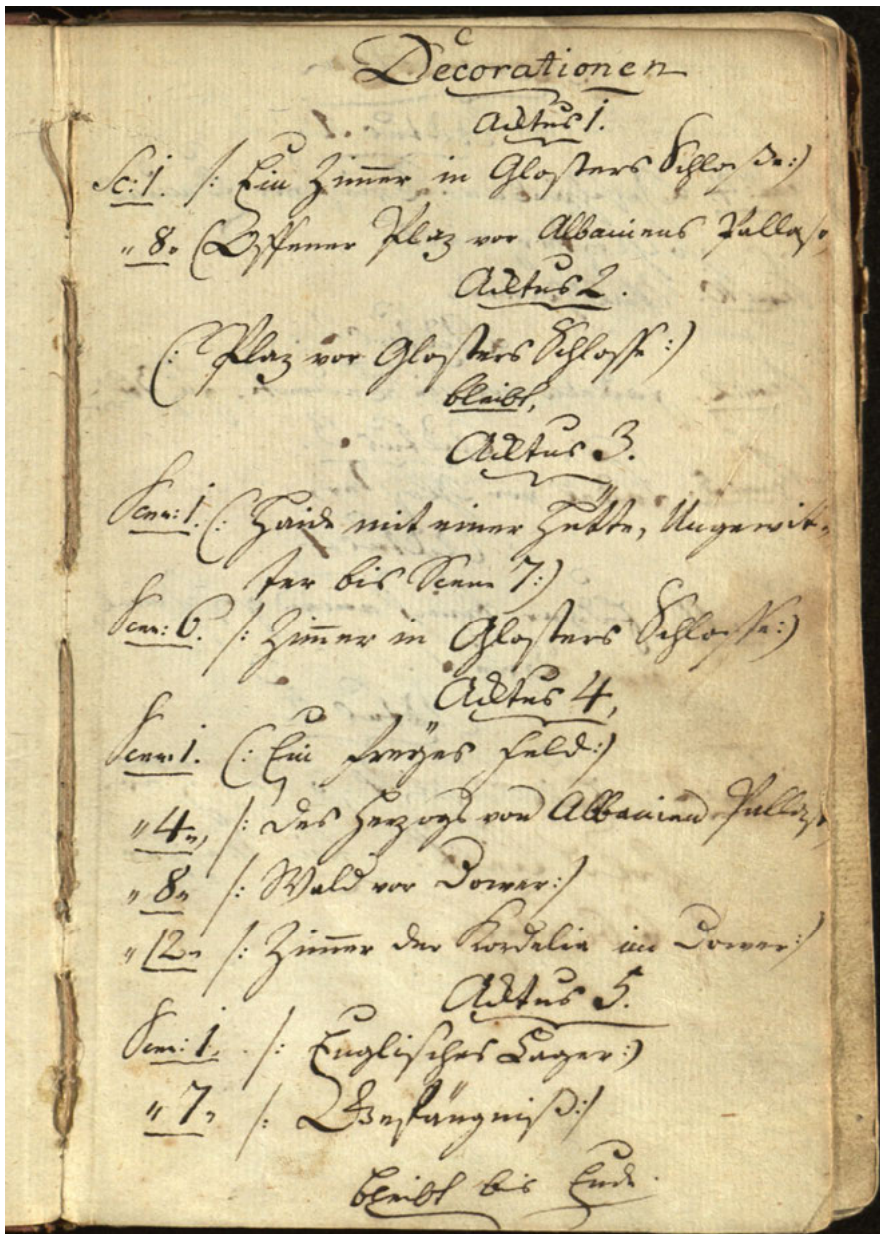 Decorationen
Actus 1.
Sc: 1. /: Ein Zim̅er in Glosters Schloße:/
" 8. (Offener Plaz vor Albaniens Pallast
Actus 2.
(: Plaz vor Glosters Schlosse:/
bleibt,
Actus 3.
Scen: 1. (: Haide mit einer Hütte, Ungewit-
ter bis Scene 7:/
Scen: 6. /: Zim̅er in Glosters Schlosse:/
Actus 4,
Scen: 1. (: Ein freÿes Feld:/
" 4 " /: des Herzogs von Albanien Pallast
" 8 " /: Wald vor Dower:/
" 12 " /: Zim̅er der Kordelia in Dower:/
Actus 5.
Scen: 1. /: Englisches Lager:/
" 7 " /: Gefängniß:/
bleibt bis Ende.